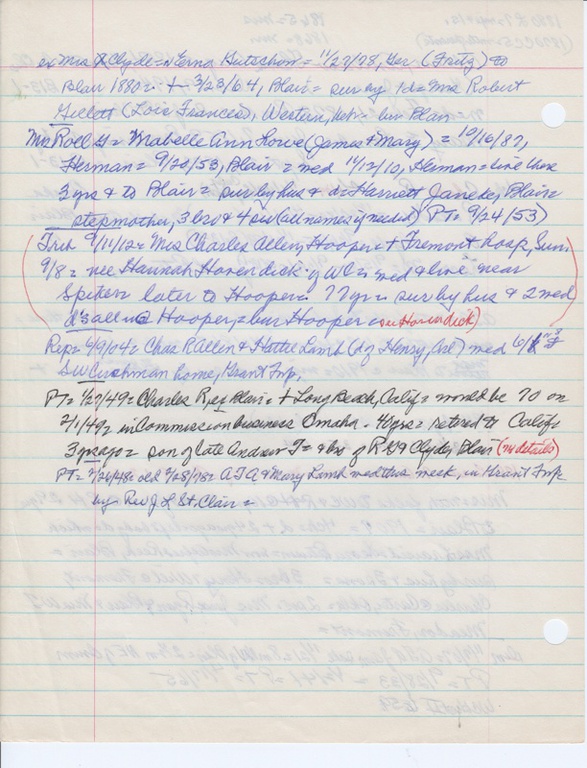 ex Mrs R Clyde = n Erna Gutschow = 11/27/78, Ger (Fritz) to
Blair 1880 = + 3/23/64, Blair = sur by 1 d = Mrs Robert
Gillett (Lois Frances), Western, Neb = bur Blair
Mrs Roll G = Mabelle Ann Lowe (James & Mary) = 10/16/87,
Herman = 9/20/53, Blair = med 11/12/10, Herman = live there
3 yrs & to Blair = sur by hus & d = Harriett Janeke, Blair =
stepmother, 3 bro & 4 sis (all names if needed) PT = 9/24/53)
Trib 9/11/12 = Mrs Charles Allen, Hooper + Fremont hosp, Sun
9/8 = nee Hannah Havendick of WC = med & live near
Spiker = later to Hooper = 77 yr = sur by hus & 2 med
d's all @ Hooper, = bur Hooper = (see Havendick)
Rep = 6/9/04 = Chas R Allen & Hattie Lamb (d of Henry, ) med 6/
SW Cushman home, Grant Twp.
PT = 1/27/49 = Charles R, ex Blair = + Long Beach, Calif = would be 70 on
2/1/49 = in Commission business Omaha - 40 yrs = retired to Calif
3 yrs ago = son of late Andrew T = & bro of R G & Clyde, Blair = (no details)
PT = 2/26/48 = old 2/28/78 = A T A & Mary Lamb med this week, in Grant Twp
by Rev J L St. Clair =